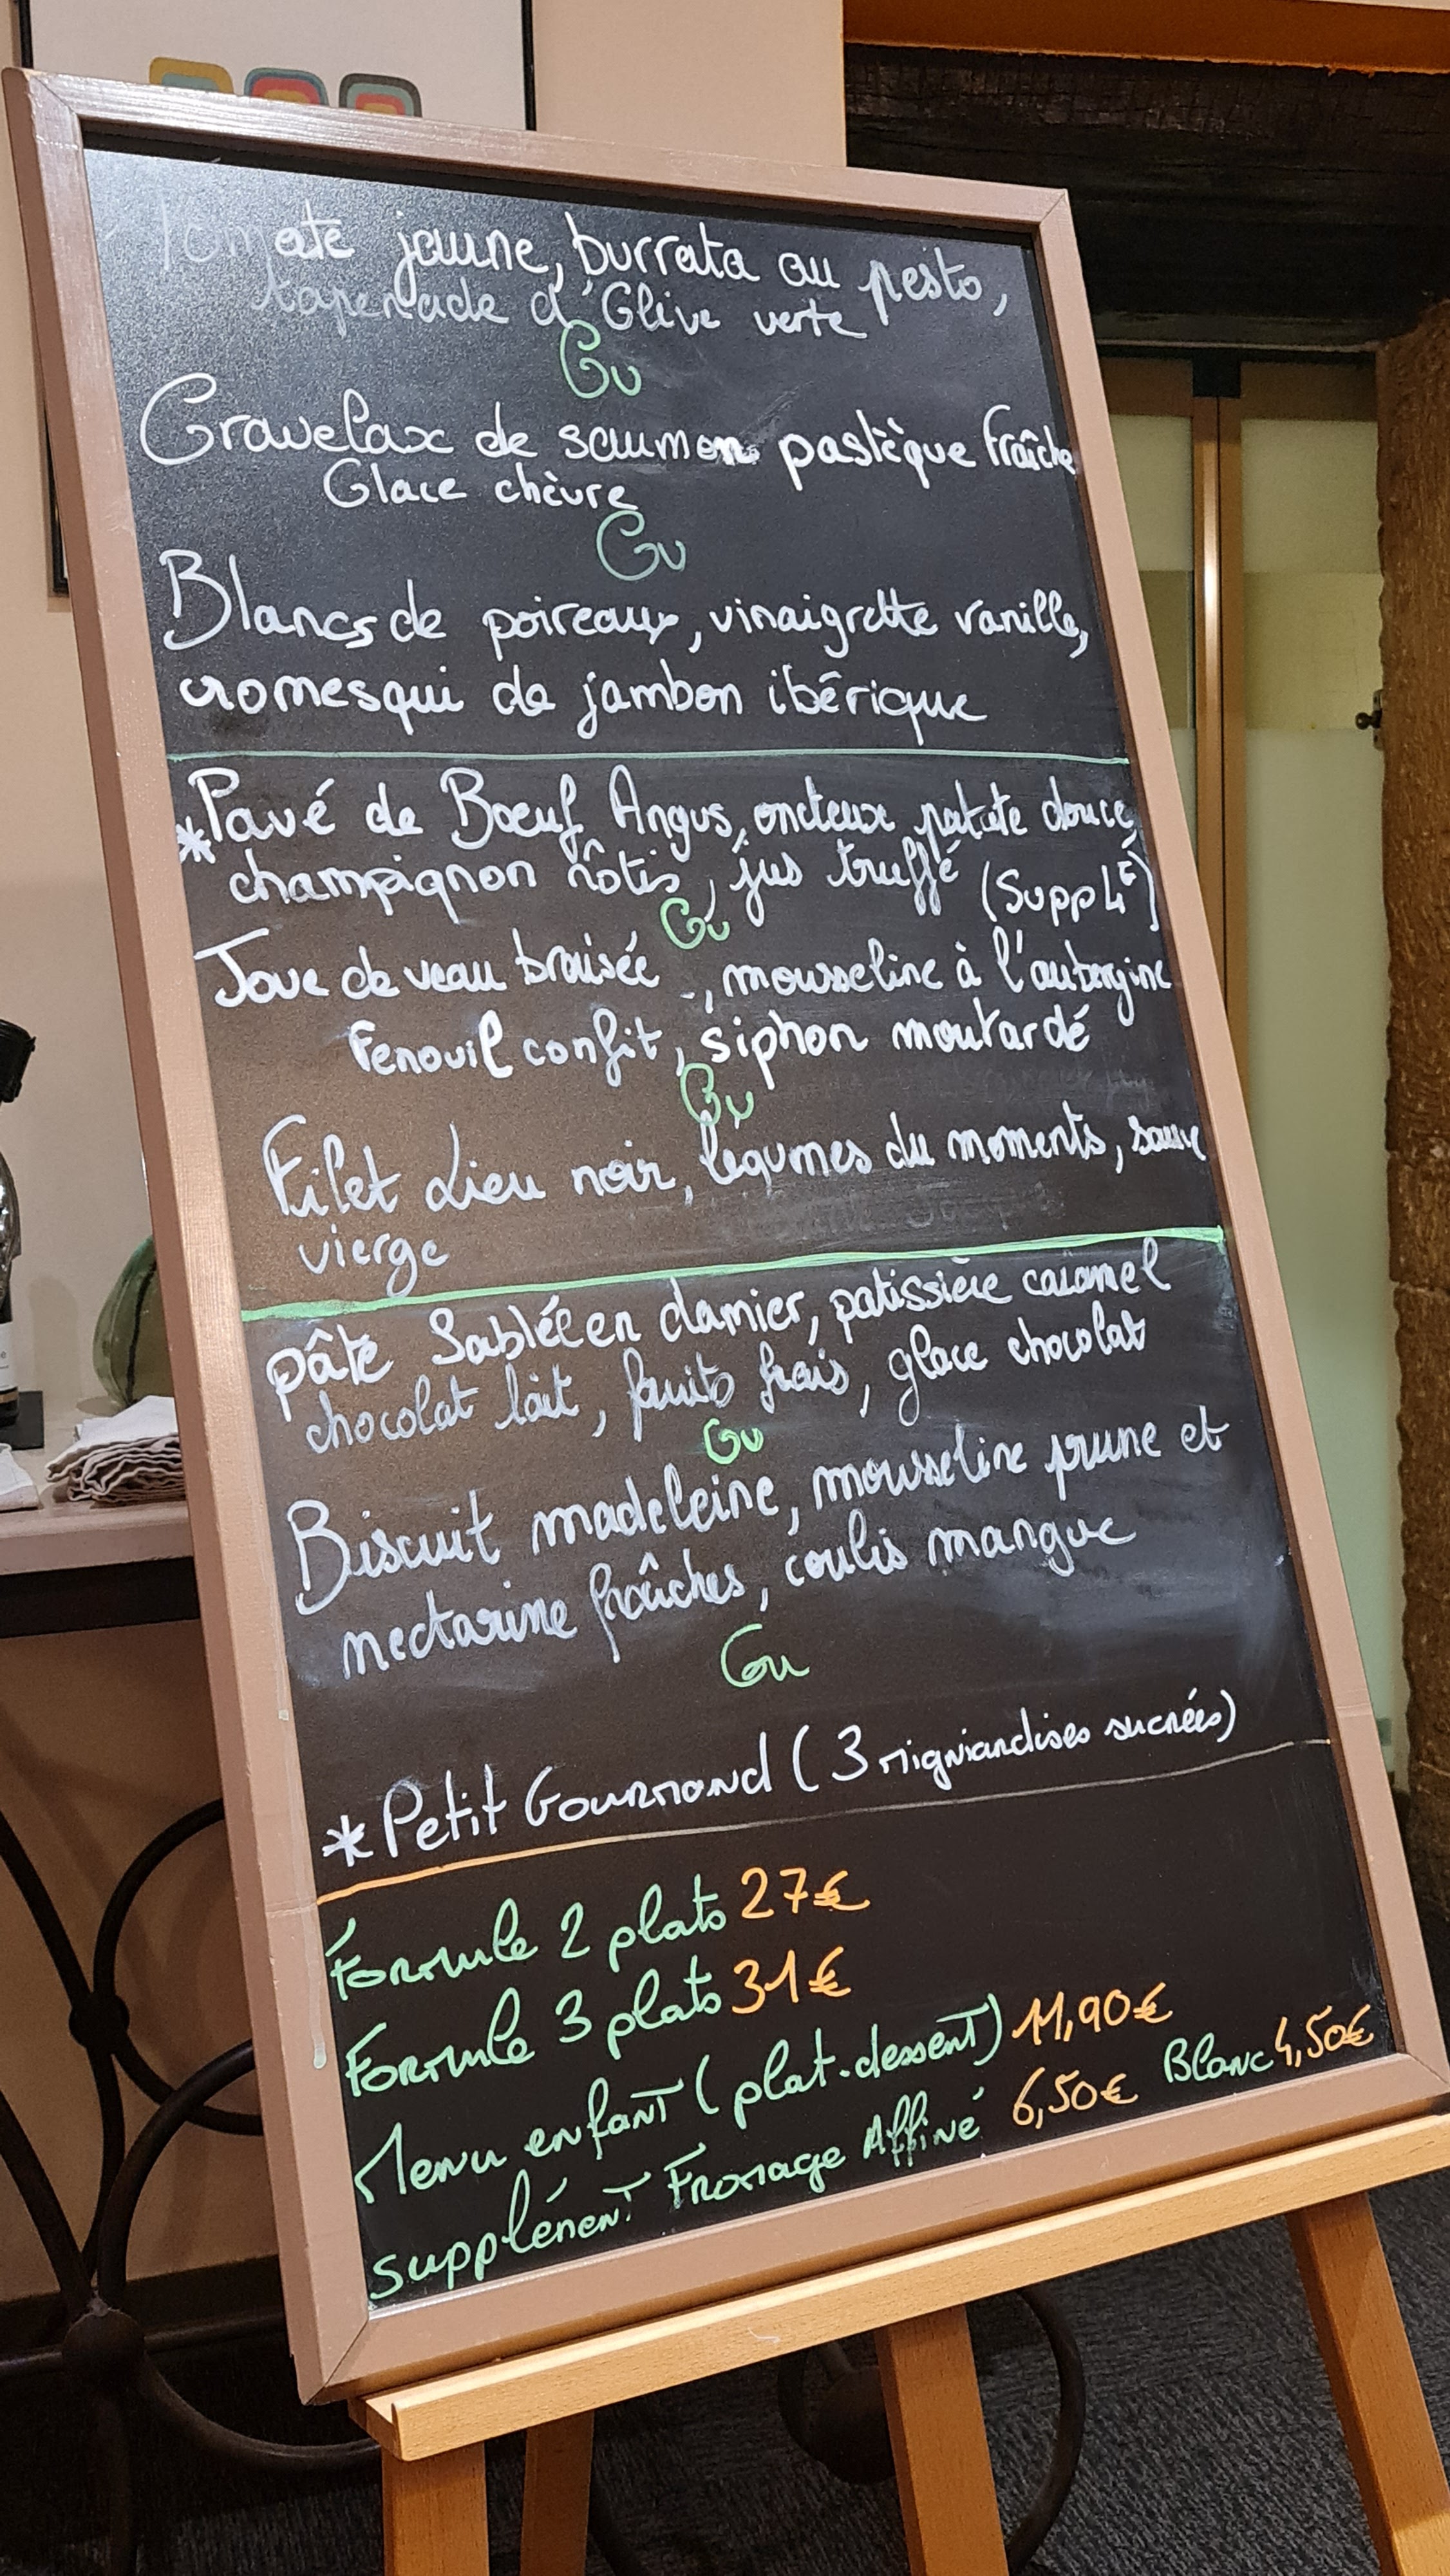 Tomate jaune, burrata au pesto,
tapenade d'Olive verte
Ou
Gravelax de saumon pastèque Fraîche
Glace chèvre
Ou
Blancs de poireaux, vinaigrette vanille,
cromesqui de jambon ibérique
*Pavé de Boeuf Angus, oncteux patate douce,
champignon rôtis, jus truffé (Supp 4€)
Ou
Joue de veau braisée, mousseline à l'aubergine
Fenouil confit, siphon moutardé
Ou
Filet Lieu noir, légumes du moments, sauce
vierge
pâte Sablée en damier, patissière caramel
chocolat lait, fruits frais, glace chocolat
Ou
Biscuit madeleine, mousseline prune et
nectarine fraîches, coulis mangue
Ou
*Petit Gourmand (3 migniardises sucrées)
Formule 2 plats 27€
Formule 3 plats 31€
Menu enfant (plat.dessert) 11,90€
supplément Fromage Affiné 6,50€ Blanc 4,50€